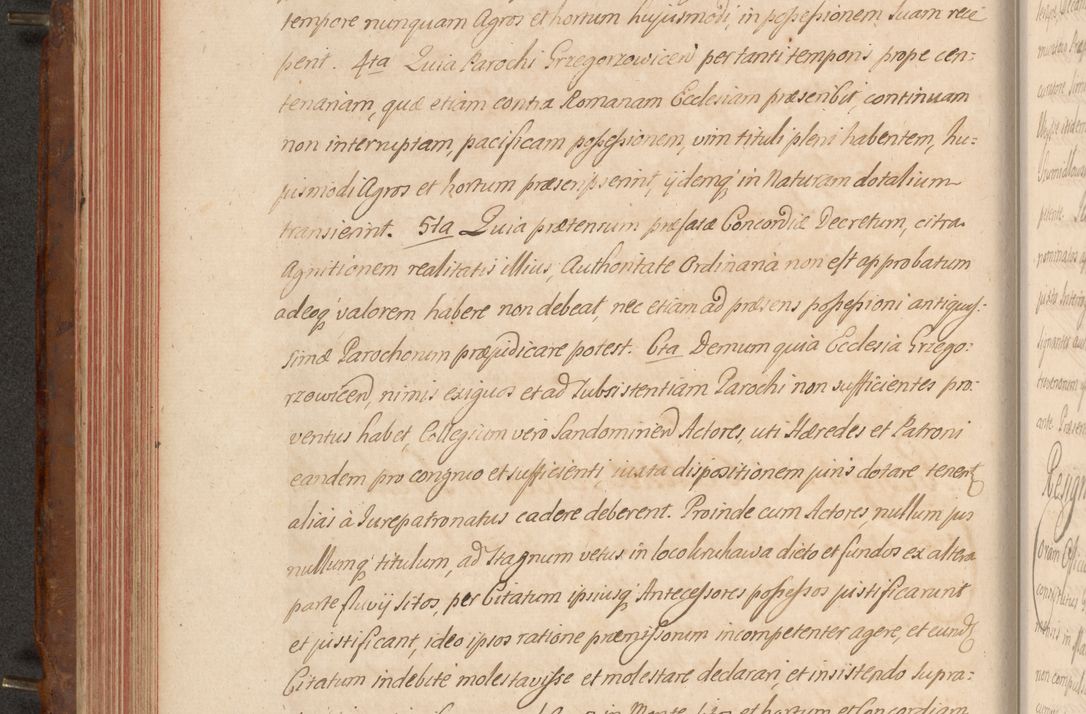 tempore nunquam Agros et hortum hujusmodi, in possessionem suam rece
perit. 4ta Quia Parochi Grzegorzowicen per tanti temporis prope cen:
tenariam, quæ etiam contra Romanam Ecclesiam præscribit, continuam
non interruptam, pacificam possessionem, vim tituli pleni habentem, hu:
jusmodi Agros et hortum præscripserint, ijdemq' in Naturam dotalium
transierint. 5ta Quia prætensum præfatæ Concordiæ Decretum, citra
Agnitionem realitatis illius, Authoritate Ordinaria non est approbatum
adeoq' valorem habere non debeat, nec etiam ad præsens possessioni antiquis:
simæ Parochorum præjudicare potest. 6ta Demum quia Ecclesia Grzego:
rzowicen, nimis exiguos et ad subsistentiam Parochi non sufficientes pro:
ventus habet, Collegium vero Sandomirien Actores, uti Hæredes et Patroni
eandem pro congruo et sufficienti, iuxta dispositionem juris dotare tenent
alias à Jurepatronatus cadere deberent. Proinde cum Actores, nullum jus
nullumq' titulum, ad Stagnum vetus in loco kruhawa dicto et fundos ex altera
parte fluvij sitos, per Citatum ipsiusq' Antecessores possessos justificarunt
et justificant, ideo ipsos ratione præmissorum incompetenter agere, et eund
Citatum indebite molestavisse et molestare declarari, et insistendo supra:
in Monte et hortum et Concordiam